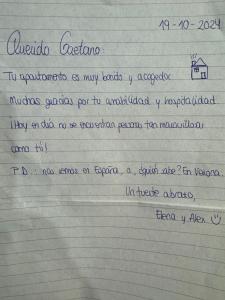 19-10-2024
Querido Gaetano:
Tu apartamento es muy bonito y acogedor.
Muchas gracias por tu amabilidad y hospitalidad.
¡Hoy en día no se encuentran personas tan maravillosas
como tú!
P.D.: nos vemos en España, o, ¿quién sabe? En Verona.
Un fuerte abrazo,
Elena y Alex